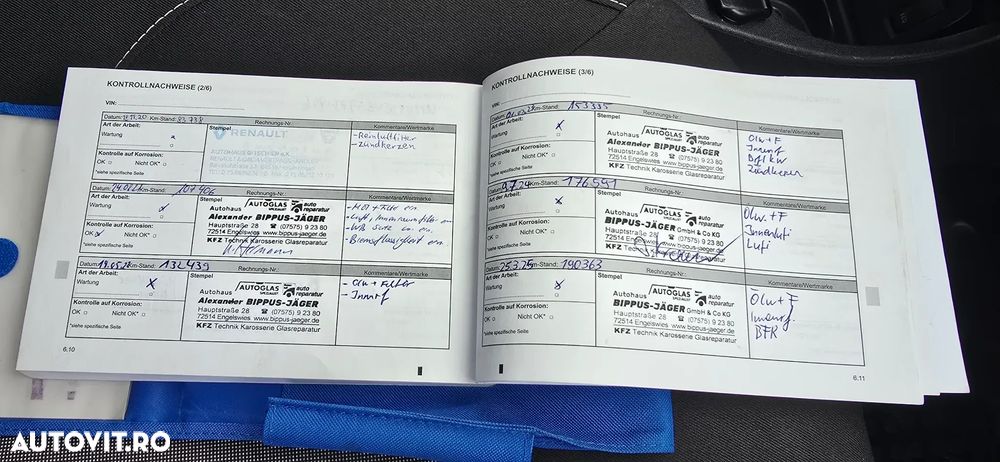 KONTROLLNACHWEISE (2/6)
VIN:
Datum: Km-Stand: 83.738 Rechnungs-Nr.:
Art der Arbeit: Stempel Kommentare/Wertmarke
Wartung x
RENAULT
- Reinluftfilter
- Zündkerzen
Kontrolle auf Korrosion:
OK □ Nicht OK* □
*siehe spezifische Seite
Datum: Km-Stand: 107406 Rechnungs-Nr.:
Art der Arbeit: Stempel Kommentare/Wertmarke
Wartung
Autohaus AUTOGLAS SPEZIALIST auto reparatur
Alexander BIPPUS-JÄGER
Hauptstraße 28 ☎ (07575) 9 23 80
72514 Engelswies www.bippus-jaeger.de
KFZ Technik Karosserie Glasreparatur
- Luft, Innenraumfilter
- Bremsflüssigkeit
Kontrolle auf Korrosion:
OK x Nicht OK* □
*siehe spezifische Seite
Datum: 19.05.22 Km-Stand: 132439 Rechnungs-Nr.:
Art der Arbeit: Stempel Kommentare/Wertmarke
Wartung X
Autohaus AUTOGLAS SPEZIALIST auto reparatur
Alexander BIPPUS-JÄGER
Hauptstraße 28 ☎ (07575) 9 23 80
72514 Engelswies www.bippus-jaeger.de
KFZ Technik Karosserie Glasreparatur
- Ölw + Filter
- Innenrf
Kontrolle auf Korrosion:
OK □ Nicht OK* □
*siehe spezifische Seite
6.10
KONTROLLNACHWEISE (3/6)
VIN:
Datum: Km-Stand: 153335 Rechnungs-Nr.:
Art der Arbeit: Stempel Kommentare/Wertmarke
Wartung X
Autohaus AUTOGLAS SPEZIALIST auto reparatur
Alexander BIPPUS-JÄGER
Hauptstraße 28 ☎ (07575) 9 23 80
72514 Engelswies www.bippus-jaeger.de
KFZ Technik Karosserie Glasreparatur
Ölw + F
Innenrf
Zündkerzen
Kontrolle auf Korrosion:
OK □ Nicht OK* □
*siehe spezifische Seite
Datum: 9.7.24 Km-Stand: 176591 Rechnungs-Nr.:
Art der Arbeit: Stempel Kommentare/Wertmarke
Wartung X
Autohaus AUTOGLAS SPEZIALIST auto reparatur
BIPPUS-JÄGER GmbH & Co KG
Hauptstraße 28 ☎ (07575) 9 23 80
72514 Engelswies www.bippus-jaeger.de
KFZ Technik
Ölw. + F
Innenlufi
Lufi
Kontrolle auf Korrosion:
OK □ Nicht OK* □
*siehe spezifische Seite
Datum: 25.3.25 Km-Stand: 190363 Rechnungs-Nr.:
Art der Arbeit: Stempel Kommentare/Wertmarke
Wartung X
Autohaus AUTOGLAS SPEZIALIST auto reparatur
BIPPUS-JÄGER GmbH & Co KG
Hauptstraße 28 ☎ (07575) 9 23 80
72514 Engelswies www.bippus-jaeger.de
KFZ Technik Karosserie Glasreparatur
Ölw + F
Innenrf.
BFK
Kontrolle auf Korrosion:
OK □ Nicht OK* □
*siehe spezifische Seite
6.11
AUTOVIT.RO